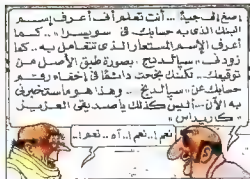 إصغ إلى جيداً؟... أنت تعلم أنى أعرف إسم
البنك الذى به حسابك فى سويسرا".. كما
أعرف الإسم المستعار الذى تتعامل به.. كما
زودنى "سبالديج" بصورة طبق الأصل من
توقيعك.. لكنك نجحت دائمًا فى إخفاء رقم
حسابك عن "سبالديج".. وهذا هو ما ستخبرنى
به الآن.. أليس كذلك يا صديقى العزيز
"كاريداس"؟
نعم!.. نعم!.. آه.. نعم!..